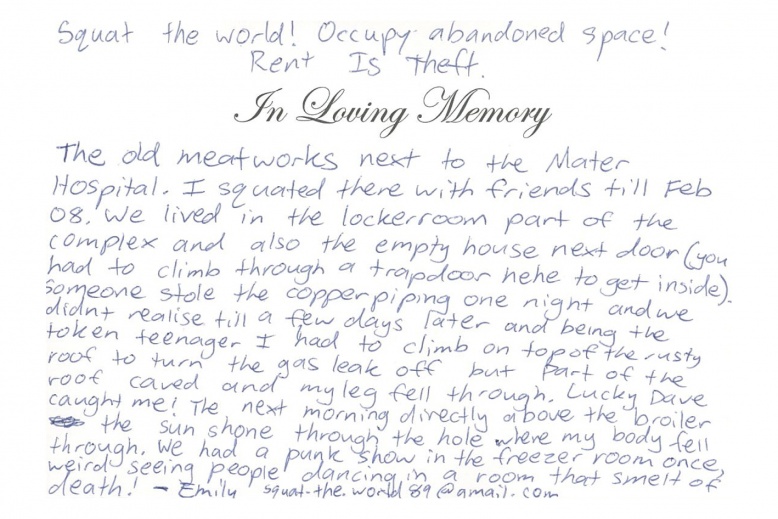 Squat the world! Occupy abandoned space!
Rent Is theft.
In Loving Memory
The old meatworks next to the Mater
Hospital. I squated there with friends till Feb
08. We lived in the lockerroom part of the
complex and also the empty house next door (you
had to climb through a trapdoor hehe to get inside).
Someone stole the copper piping one night and we
didnt realise till a few days later and being the
token teenager I had to climb on top of the rusty
roof to turn the gas leak off but part of the
roof caved and my leg fell through. Lucky Dave
caught me! The next morning directly above the broiler
the sun shone through the hole where my body fell
through. We had a punk show in the freezer room once,
weird seeing people dancing in a room that smelt of
death! - Emily squat-the.world89@gmail.com